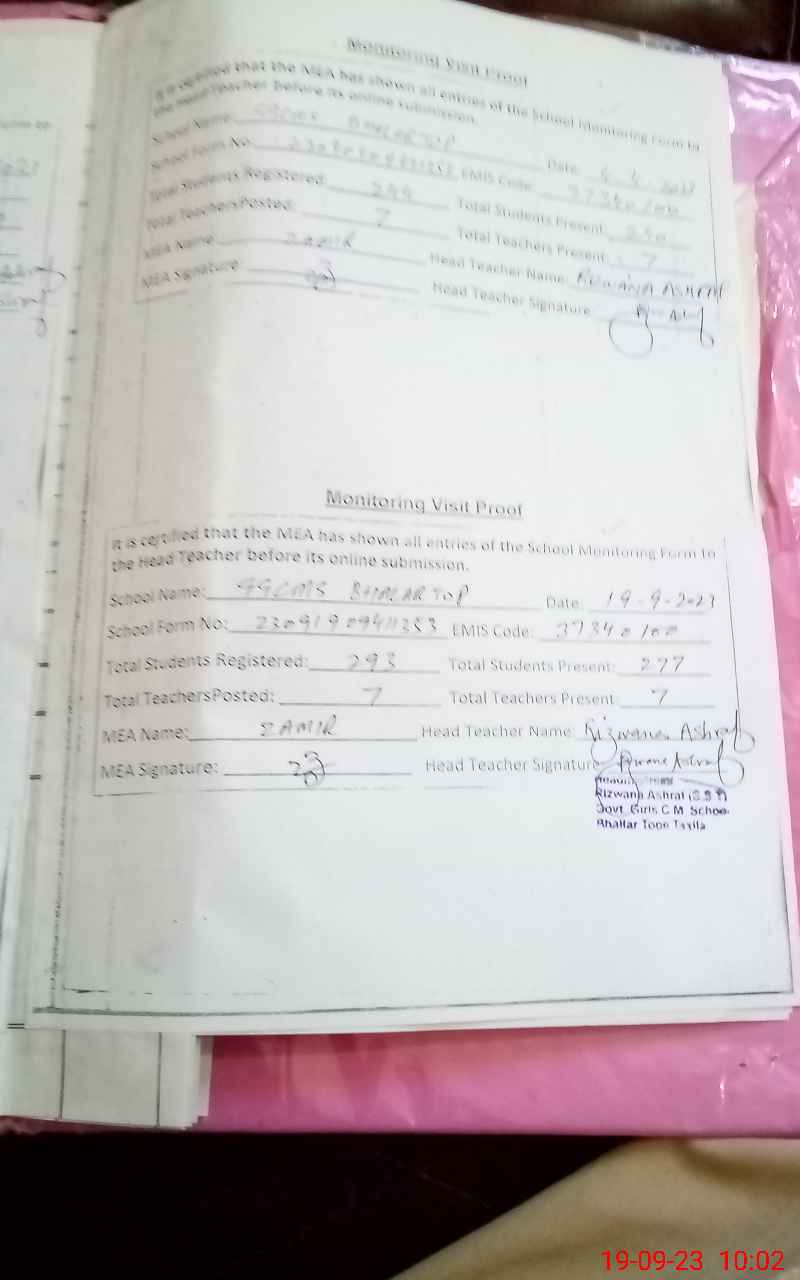 Monitoring Visit Proof
It is certified that the MEA has shown all entries of the School Monitoring Form to
the Head Teacher before its online submission.
School Name: GGCMS Date:
School Form No: EMIS Code: 37340100
Total Students Registered: Total Students Present:
Total Teachers Posted: 7 Total Teachers Present: 7
MEA Name: ZAMIR Head Teacher Name: RIZWANA ASHRAF
MEA Signature: Head Teacher Signature
Monitoring Visit Proof
It is certified that the MEA has shown all entries of the School Monitoring Form to
the Head Teacher before its online submission.
School Name: GGCMS BHALAR TOP Date: 19-9-2023
School Form No: EMIS Code: 37340100
Total Students Registered: 293 Total Students Present: 277
Total Teachers Posted: 7 Total Teachers Present 7
MEA Name: ZAMIR Head Teacher Name: Rizwana Ashraf
MEA Signature: Head Teacher Signature Rizwana Ashraf
Rizwana Ashraf (S.S.T)
Govt. Girls C.M School
Bhallar Toop Taxila
19-09-23 10:02